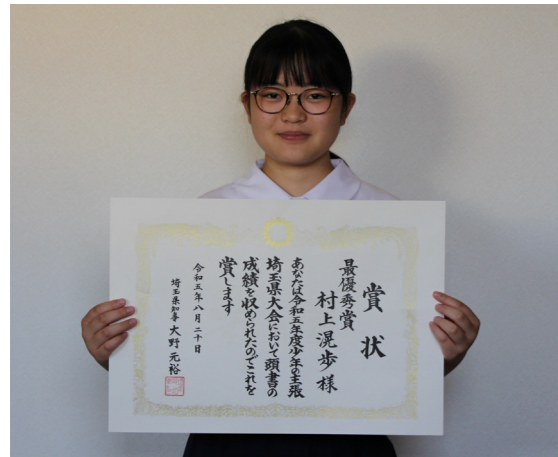 賞状
最優秀賞
村上滉歩様
あなたは令和五年度少年の主張
埼玉県大会において頭書の
成績を収められたのでこれを
賞します
令和五年八月二十日
埼玉県知事 大野元裕